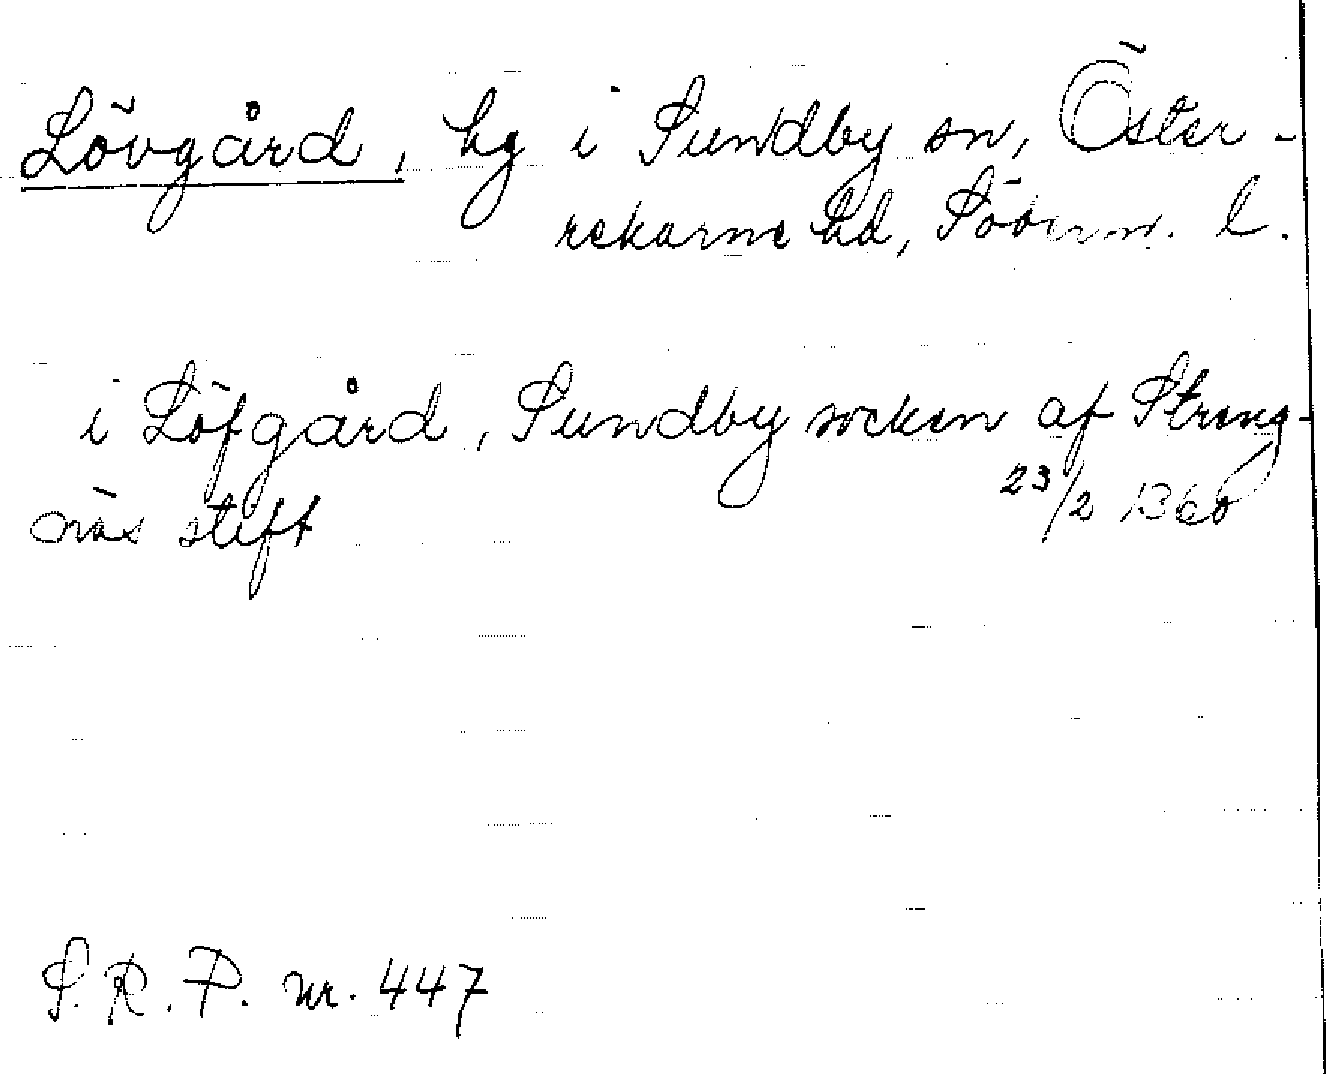 Lövgård, hg i Sundby sn, Öster-
rekarne hd, Söderm. l.
i Löfgård, Sundby socken af Streng-
näs stift 23/2 1360
S. R. P. nr. 447